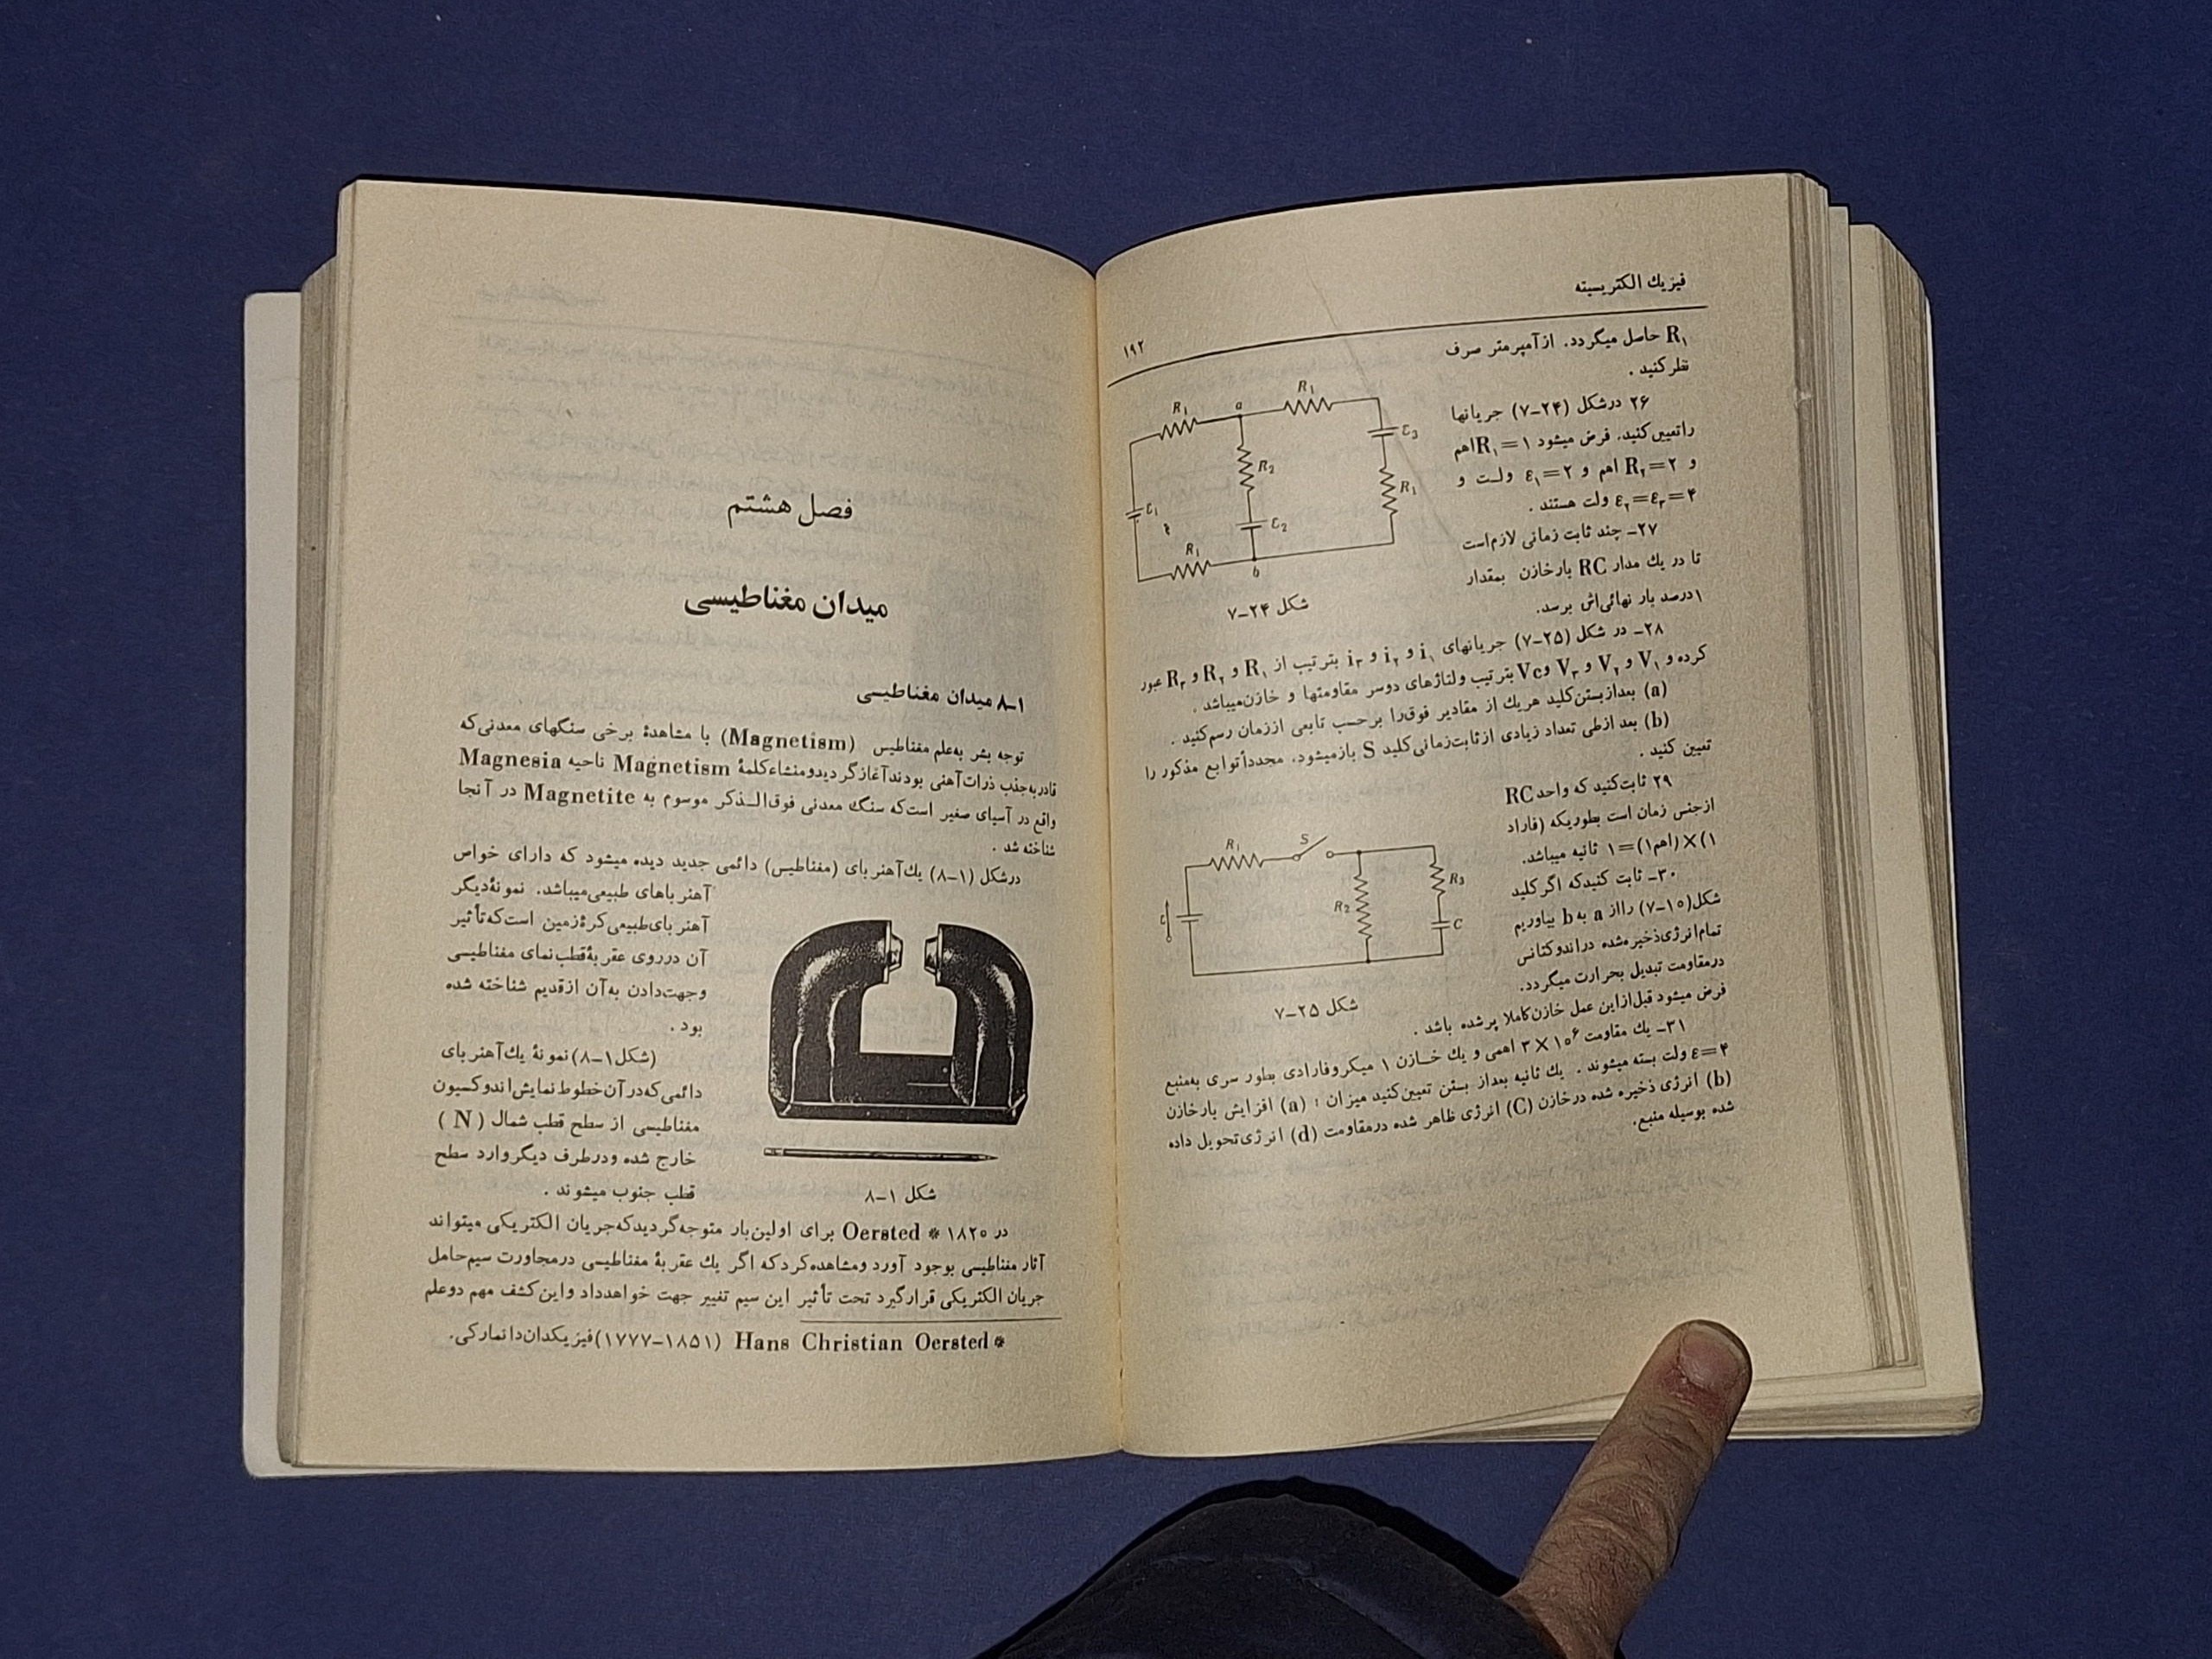 فیزیک الکتریسیته
۱۹۲
R۱ حاصل میگردد. از آمپرمتر صرف
نظر کنید .
۲۶ درشکل (۲۴-۷) جریانها
را تعیین کنید. فرض میشود R۱=۱ اهم
و R۲=۲ اهم و ε۱=۲ ولت و
ε۲=ε۳=۴ ولت هستند .
۲۷- چند ثابت زمانی لازم است
تا در یک مدار RC بار خازن بمقدار
۱درصد بار نهائی‌اش برسد.
R1
a
R1
ε3
R2
R1
ε1
ε2
R1
b
شکل ۲۴-۷
۲۸- در شکل (۲۵-۷) جریانهای i۱ و i۲ و i۳ بترتیب از R۱ و R۲ و R۳ عبور
کرده و V۱ و V۲ و V۳ و Vc بترتیب ولتاژهای دوسر مقاومتها و خازن میباشد .
(a) بعد از بستن کلید هر یک از مقادیر فوق را برحسب تابعی از زمان رسم کنید .
(b) بعد از طی تعداد زیادی از ثابت زمانی کلید S باز میشود، مجدداً توابع مذکور را
تعیین کنید .
۲۹ ثابت کنید که واحد RC
از جنس زمان است بطوریکه (فاراد
۱)×(اهم۱)=۱ ثانیه میباشد.
۳۰- ثابت کنید که اگر کلید
شکل(۱۰-۷) را از a به b بیاوریم
تمام انرژی ذخیره شده در اندوکتانس
در مقاومت تبدیل بحرارت میگردد.
فرض میشود قبل از این عمل خازن کاملا پر شده باشد .
R1
S
R2
R3
C
ε
شکل ۲۵-۷
۳۱- یک مقاومت ۳×۱۰^۶ اهمی و یک خازن ۱ میکروفارادی بطور سری به منبع
ε=۴ ولت بسته میشوند . یک ثانیه بعد از بستن تعیین کنید میزان : (a) افزایش بار خازن
(b) انرژی ذخیره شده در خازن (C) انرژی ظاهر شده در مقاومت (d) انرژی تحویل داده
شده بوسیله منبع.
فصل هشتم
میدان مغناطیسی
۸-۱ میدان مغناطیسی
توجه بشر به علم مغناطیس (Magnetism) با مشاهدهٔ برخی سنگهای معدنی که
قادر به جذب ذرات آهنی بودند آغاز گردید و منشاء کلمهٔ Magnetism ناحیه Magnesia
واقع در آسیای صغیر است که سنگ معدنی فوق‌الذکر موسوم به Magnetite در آنجا
شناخته شد .
درشکل (۱-۸) یک آهنربای (مغناطیس) دائمی جدید دیده میشود که دارای خواص
آهنرباهای طبیعی میباشد. نمونهٔ دیگر
آهنربای طبیعی کرهٔ زمین است که تأثیر
آن در روی عقربهٔ قطب نمای مغناطیسی
وجهت دادن به آن از قدیم شناخته شده
بود .
(شکل۱-۸) نمونهٔ یک آهنربای
دائمی که در آن خطوط نمایش اندوکسیون
مغناطیسی از سطح قطب شمال ( N )
خارج شده و در طرف دیگر وارد سطح
قطب جنوب میشوند .
شکل ۱-۸
در ۱۸۲۰ * Oersted برای اولین بار متوجه گردید که جریان الکتریکی میتواند
آثار مغناطیسی بوجود آورد و مشاهده کرد که اگر یک عقربهٔ مغناطیسی در مجاورت سیم حامل
جریان الکتریکی قرار گیرد تحت تأثیر این سیم تغییر جهت خواهد داد و این کشف مهم دو علم
* Hans Christian Oersted (۱۷۷۷-۱۸۵۱) فیزیکدان دانمارکی.